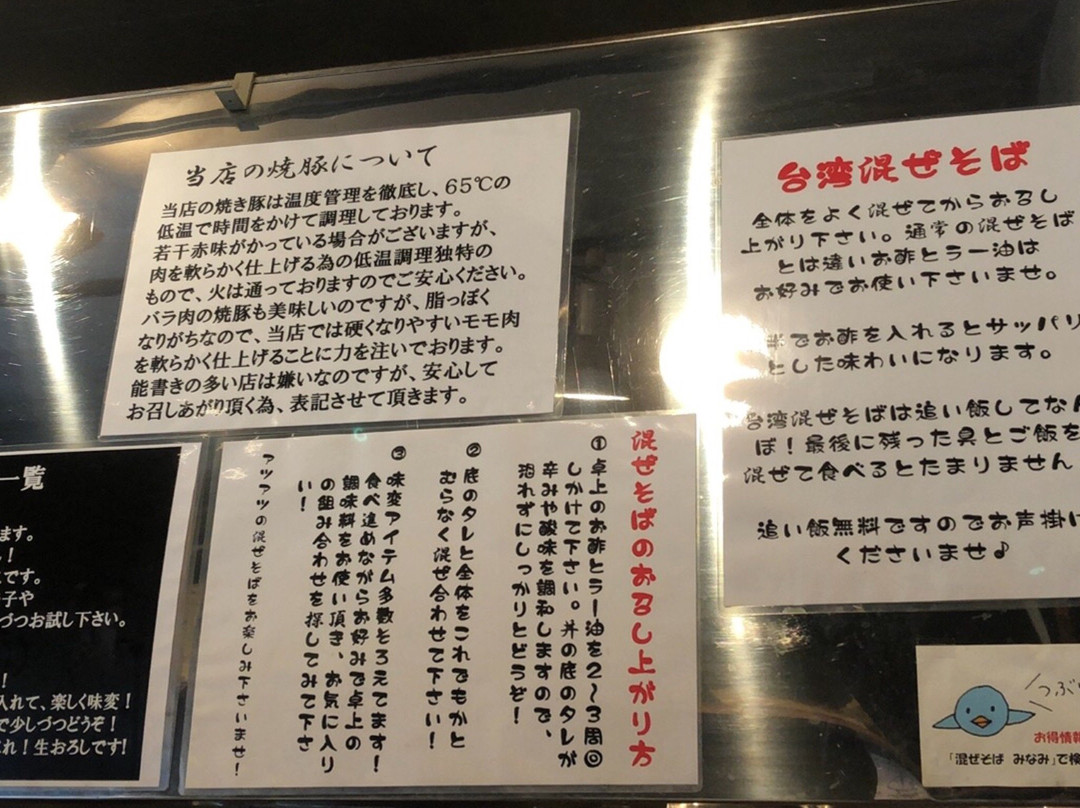 当店の焼豚について
当店の焼き豚は温度管理を徹底し、65℃の
低温で時間をかけて調理しております。
若干赤味がかっている場合がございますが、
肉を軟らかく仕上げる為の低温調理独特の
もので、火は通っておりますのでご安心ください。
バラ肉の焼豚も美味しいのですが、脂っぽく
なりがちなので、当店では硬くなりやすいモモ肉
を軟らかく仕上げることに力を注いでおります。
能書きの多い店は嫌いなのですが、安心して
お召しあがり頂く為、表記させて頂きます。
台湾混ぜそば
全体をよく混ぜてからお召し
上がり下さい。通常の混ぜそば
とは違いお酢とラー油は
お好みでお使い下さいませ。
半でお酢を入れるとサッパリ
とした味わいになります。
台湾混ぜそばは追い飯してなん
ぼ！最後に残った具とご飯を
混ぜて食べるとたまりません
追い飯無料ですのでお声掛け
くださいませ♪
混ぜそばのお召し上がり方
①卓上のお酢とラー油を2〜3周◎
しかけて下さい。丼の底のタレが
辛みや酸味を調和しますので、
恐れずにしっかりとどうぞ！
②底のタレと全体をこれでもかと
むらなく混ぜ合わせて下さい！
③味変アイテム多数そろえてます！
食べ進めながらお好みで卓上の
調味料をお使い頂き、お気に入り
の組み合わせを探してみて下さ
い！
アツアツの混ぜそばをお楽しみ下さいませ！
一覧
ます。
！
です。
子や
づつお試し下さい。
！
入れて、楽しく味変！
で少しづつどうぞ！
れ！生おろしです!
つぶ
お得情報
「混ぜそば みなみ」で検